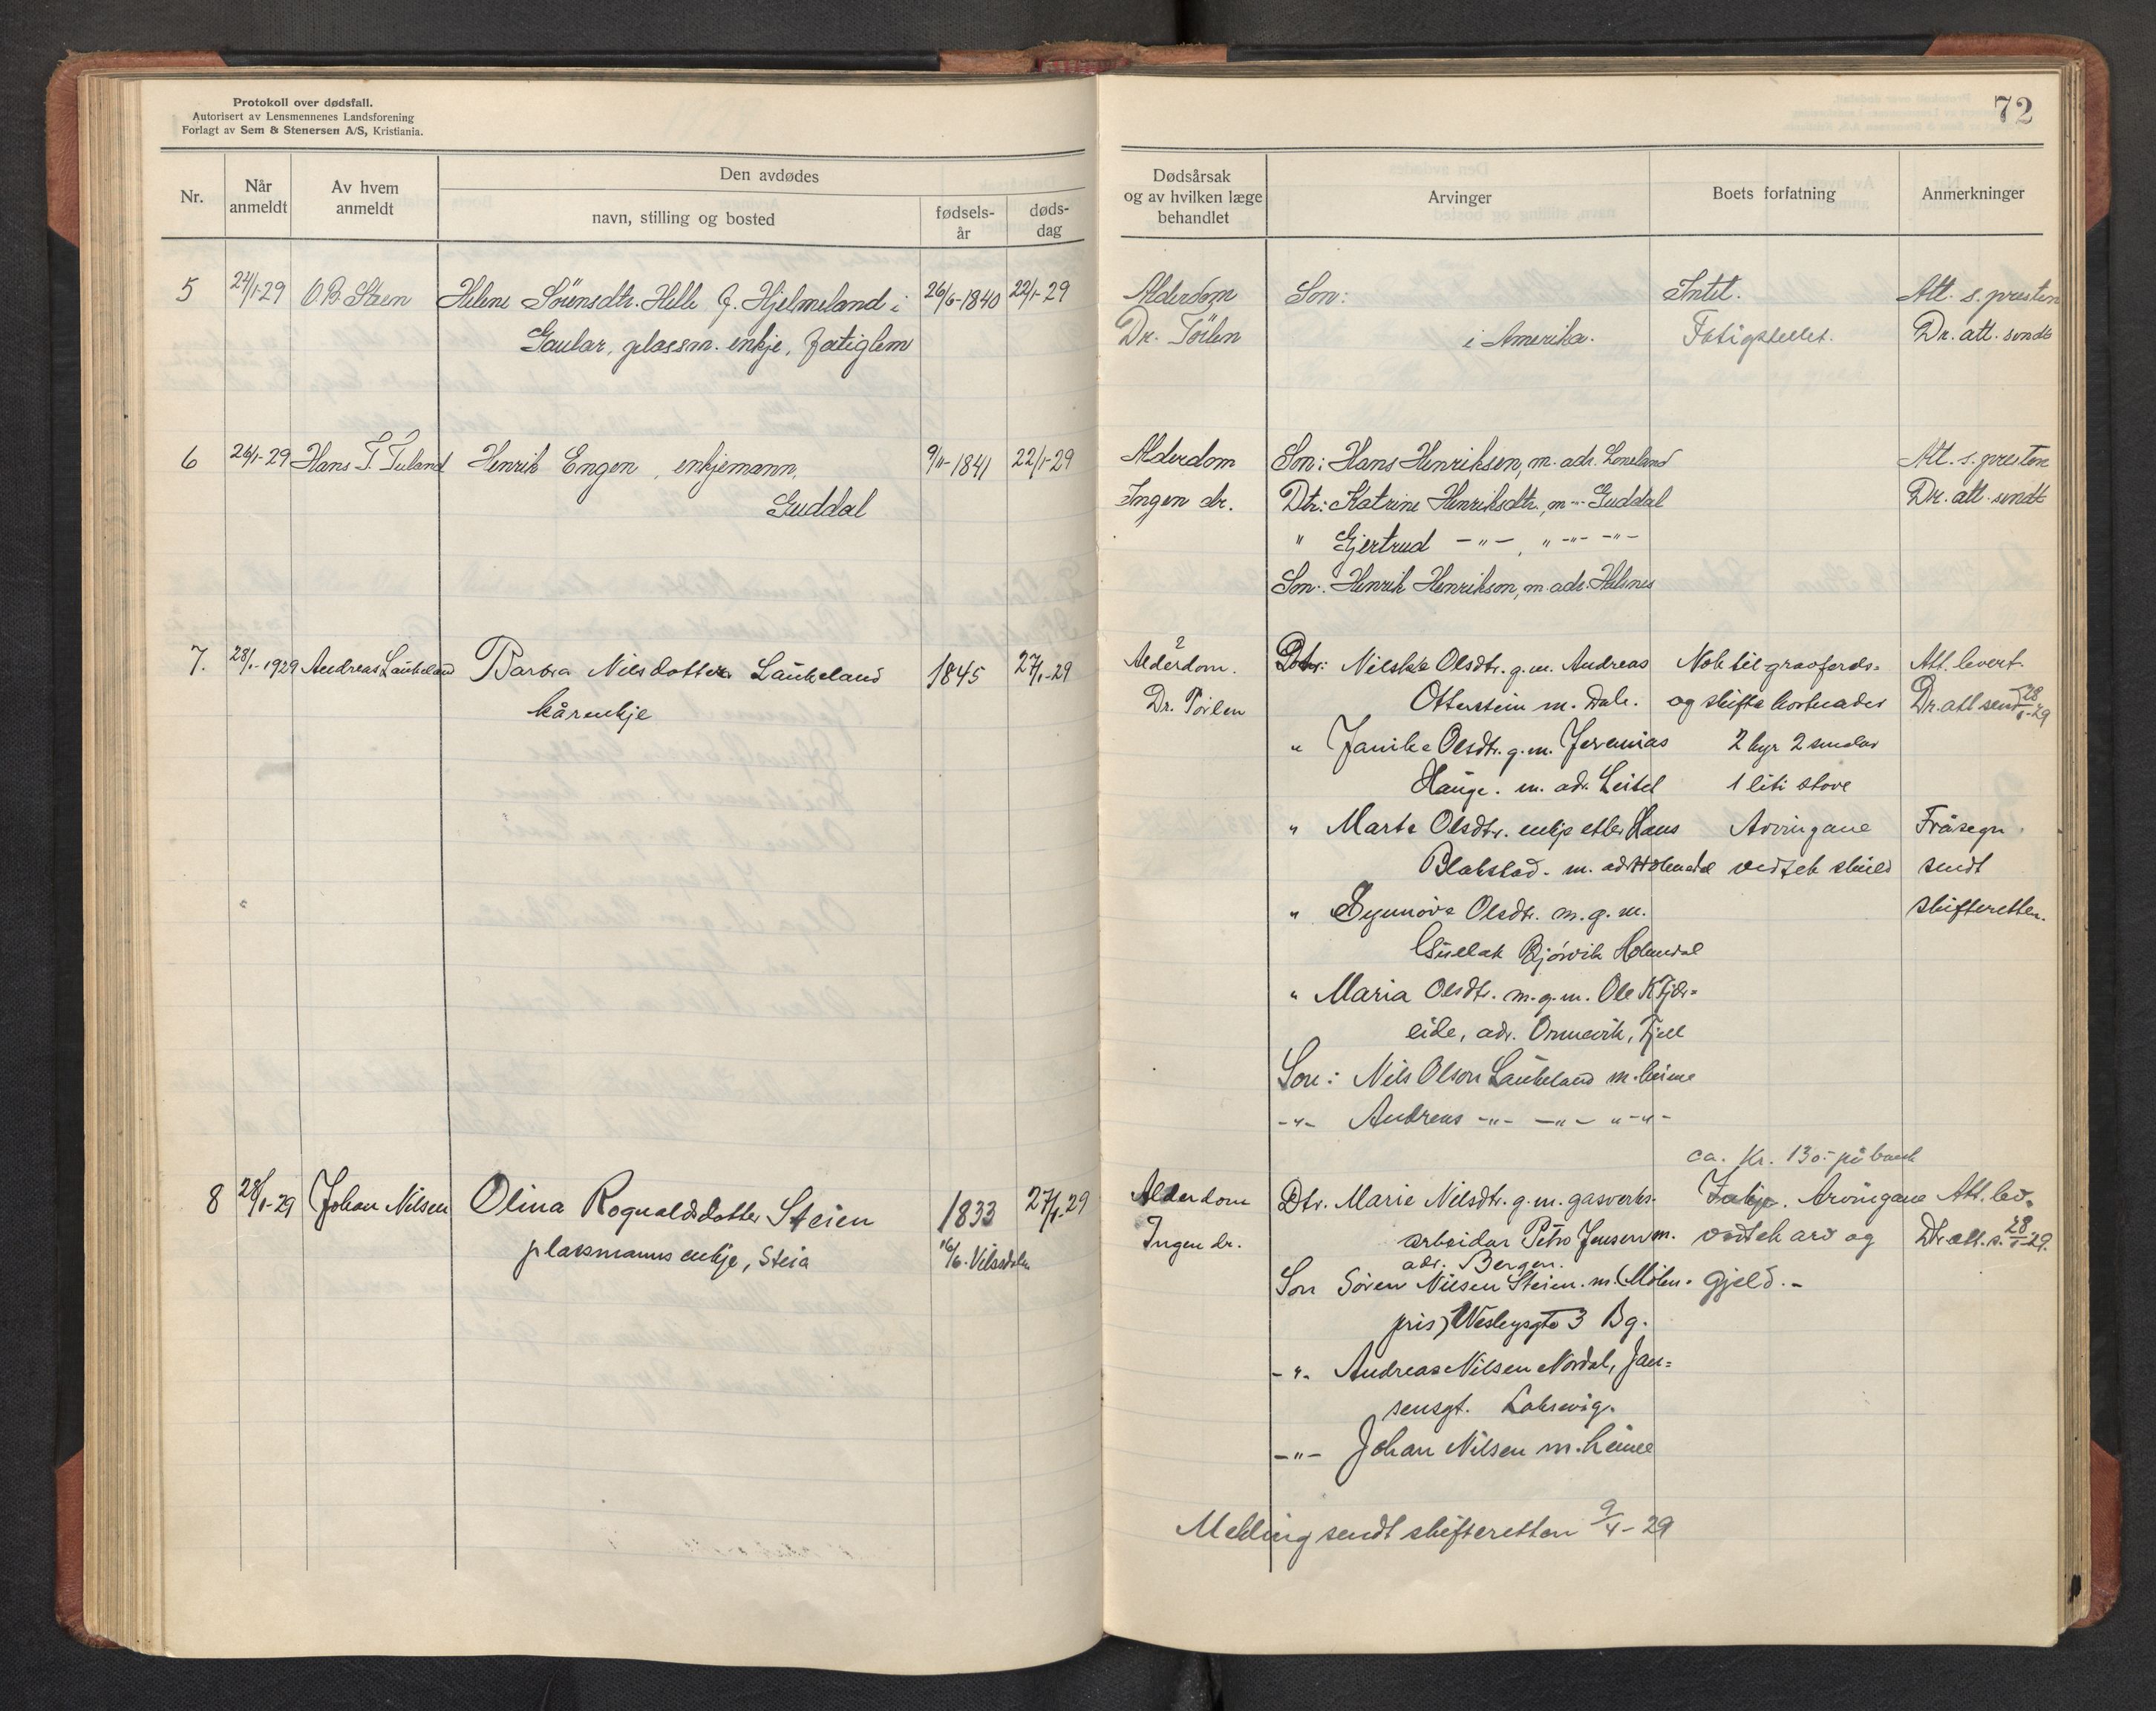 Protokoll over dødsfall.
Autorisert av Lensmennenes Landsforening
Forlagt av Sem & Stenersen A/S, Kristiania.
72
Nr.
Når anmeldt
Av hvem anmeldt
Den avdødes
navn, stilling og bosted
fødsels-år
døds-dag
Dødsårsak og av hvilken læge behandlet
Arvinger
Boets forfatning
Anmerkninger
5 24/1-29 O.B. Steen Helene Sörensdtr. Helle f. Hjelmeland i 26/6-1840 22/1-29 Alderdom Son: Intet. Att. s. presten
Gaular, plassm. enkje, fatiglem Dr. i Amerika. Dr. att. sendt
6 26/1-29 Hans T. Henrik Engen, enkjemann, 9/11-1841 22/1-29 Alderdom Son: Hans Henriksen, m. adr. Att. s. presten
Guddal Ingen dr. Dtr: Katrine Henriksdtr., m -"- Guddal Dr. att. sendt
" Gjertrud -"-, " -"- -"-
Son: Henrik Henrikson, m. adr.
7. 28/1-1929 Andreas Laukeland Barbra Nilsdotter Laukeland 1845 27/1-29 ? Alderdom. Dtr: Olsdtr. g.m. Andreas Nok til gravferds- Att. levert.
kårenkje Dr. Otterstein m. Dale. og skiftekostnader Dr. att send 28/1-29
" Janike Olsdtr. g.m. Jeremias 2 kyr 2 smalar
Hauge. m. adr. Leitel 1 liti stove
" Marta Olsdtr. enkje etter Hans Arvingane Fråsegn
Blakstad. m. adr Holmedal vedtek skuld sendt
" Synnöve Olsdtr. m. g. m. skifteretten.
Bjórvik Holmedal
" Maria Olsdtr. m. g. m. Ole K
eide, adr. Fjell
Son: Nils Olson Laukeland m. heime
-"- Andreas -"- -"- " -"-
ca. kr. 130.- på bank
8 28/1-29 Johan Nilsen Olina Rognaldsdotter Steien 1833 27/1-29 Alderdom Dtr. Marie Nilsdtr. g.m. gasverks- Arvingane Att. lev.
plassmanns enkje, Steia 16/6. Ingen dr. arbeidar Jensen m. vedtek arv og Dr. att. s. 28/1-29.
adr. Bergen.
Son Sören Nilsen Steien. m. (Mölen- gjeld.-
pris) Wesleysgt 3 Bg.
-"- Andreas Nilsen Nordal, Jan-
sensgt. Laksevåg.
-"- Johan Nilsen m. heime
Melding sendt skifteretten 9/4-29